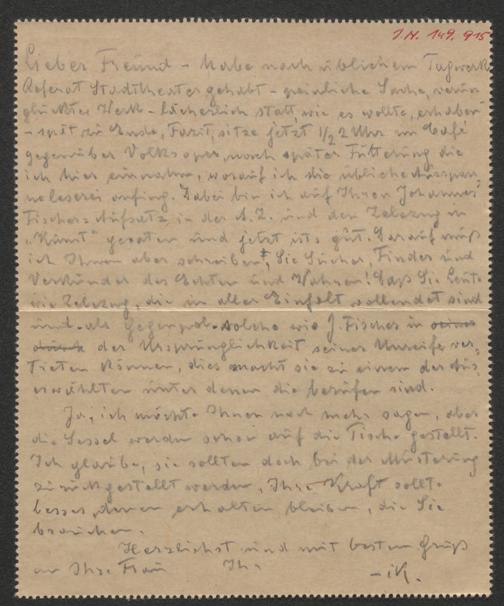 J.N. 149.915
Lieber Freund – habe nach üblichem Tagwerk
Referat Stadttheater gehabt – peinliche Sache, verun-
glücktes Werk – lächerlich statt, wie es wollte, erhaben
– spät zu Ende, Fazit, sitze jetzt 1/2 2 Uhr im Café
gegenüber Volksoper, nach später Fütterung die
ich hier einnahm, worauf ich die übliche
anfing. Dabei bin ich auf Ihren Johannes
Fischer-Aufsatz in der A. Z. und den Zelezny in
„Kunst" geraten und jetzt ists gut. Darauf muß
ich Ihnen aber schreiben: Sie Sucher, Finder und
Verkünder des Echten und Wahren! Daß Sie Leute
wie Zelezny, die in aller Einfalt vollendet sind
und als Gegenpol solche wie J. Fischer in
der Ursprünglichkeit seiner Unreife ver-
treten können, dies macht sie zu einem der Aus-
erwählten unter denen die berufen sind.
Ja, ich möchte Ihnen noch mehr sagen, aber
die Sessel werden schon auf die Tische gestellt.
Ich glaube, sie sollten doch bei der Musterung
zurückgestellt werden, Ihre Kraft sollte
besser denen erhalten bleiben, die Sie
brauchen.
Herzlichst und mit besten Grüß
an Ihre Frau Ihr